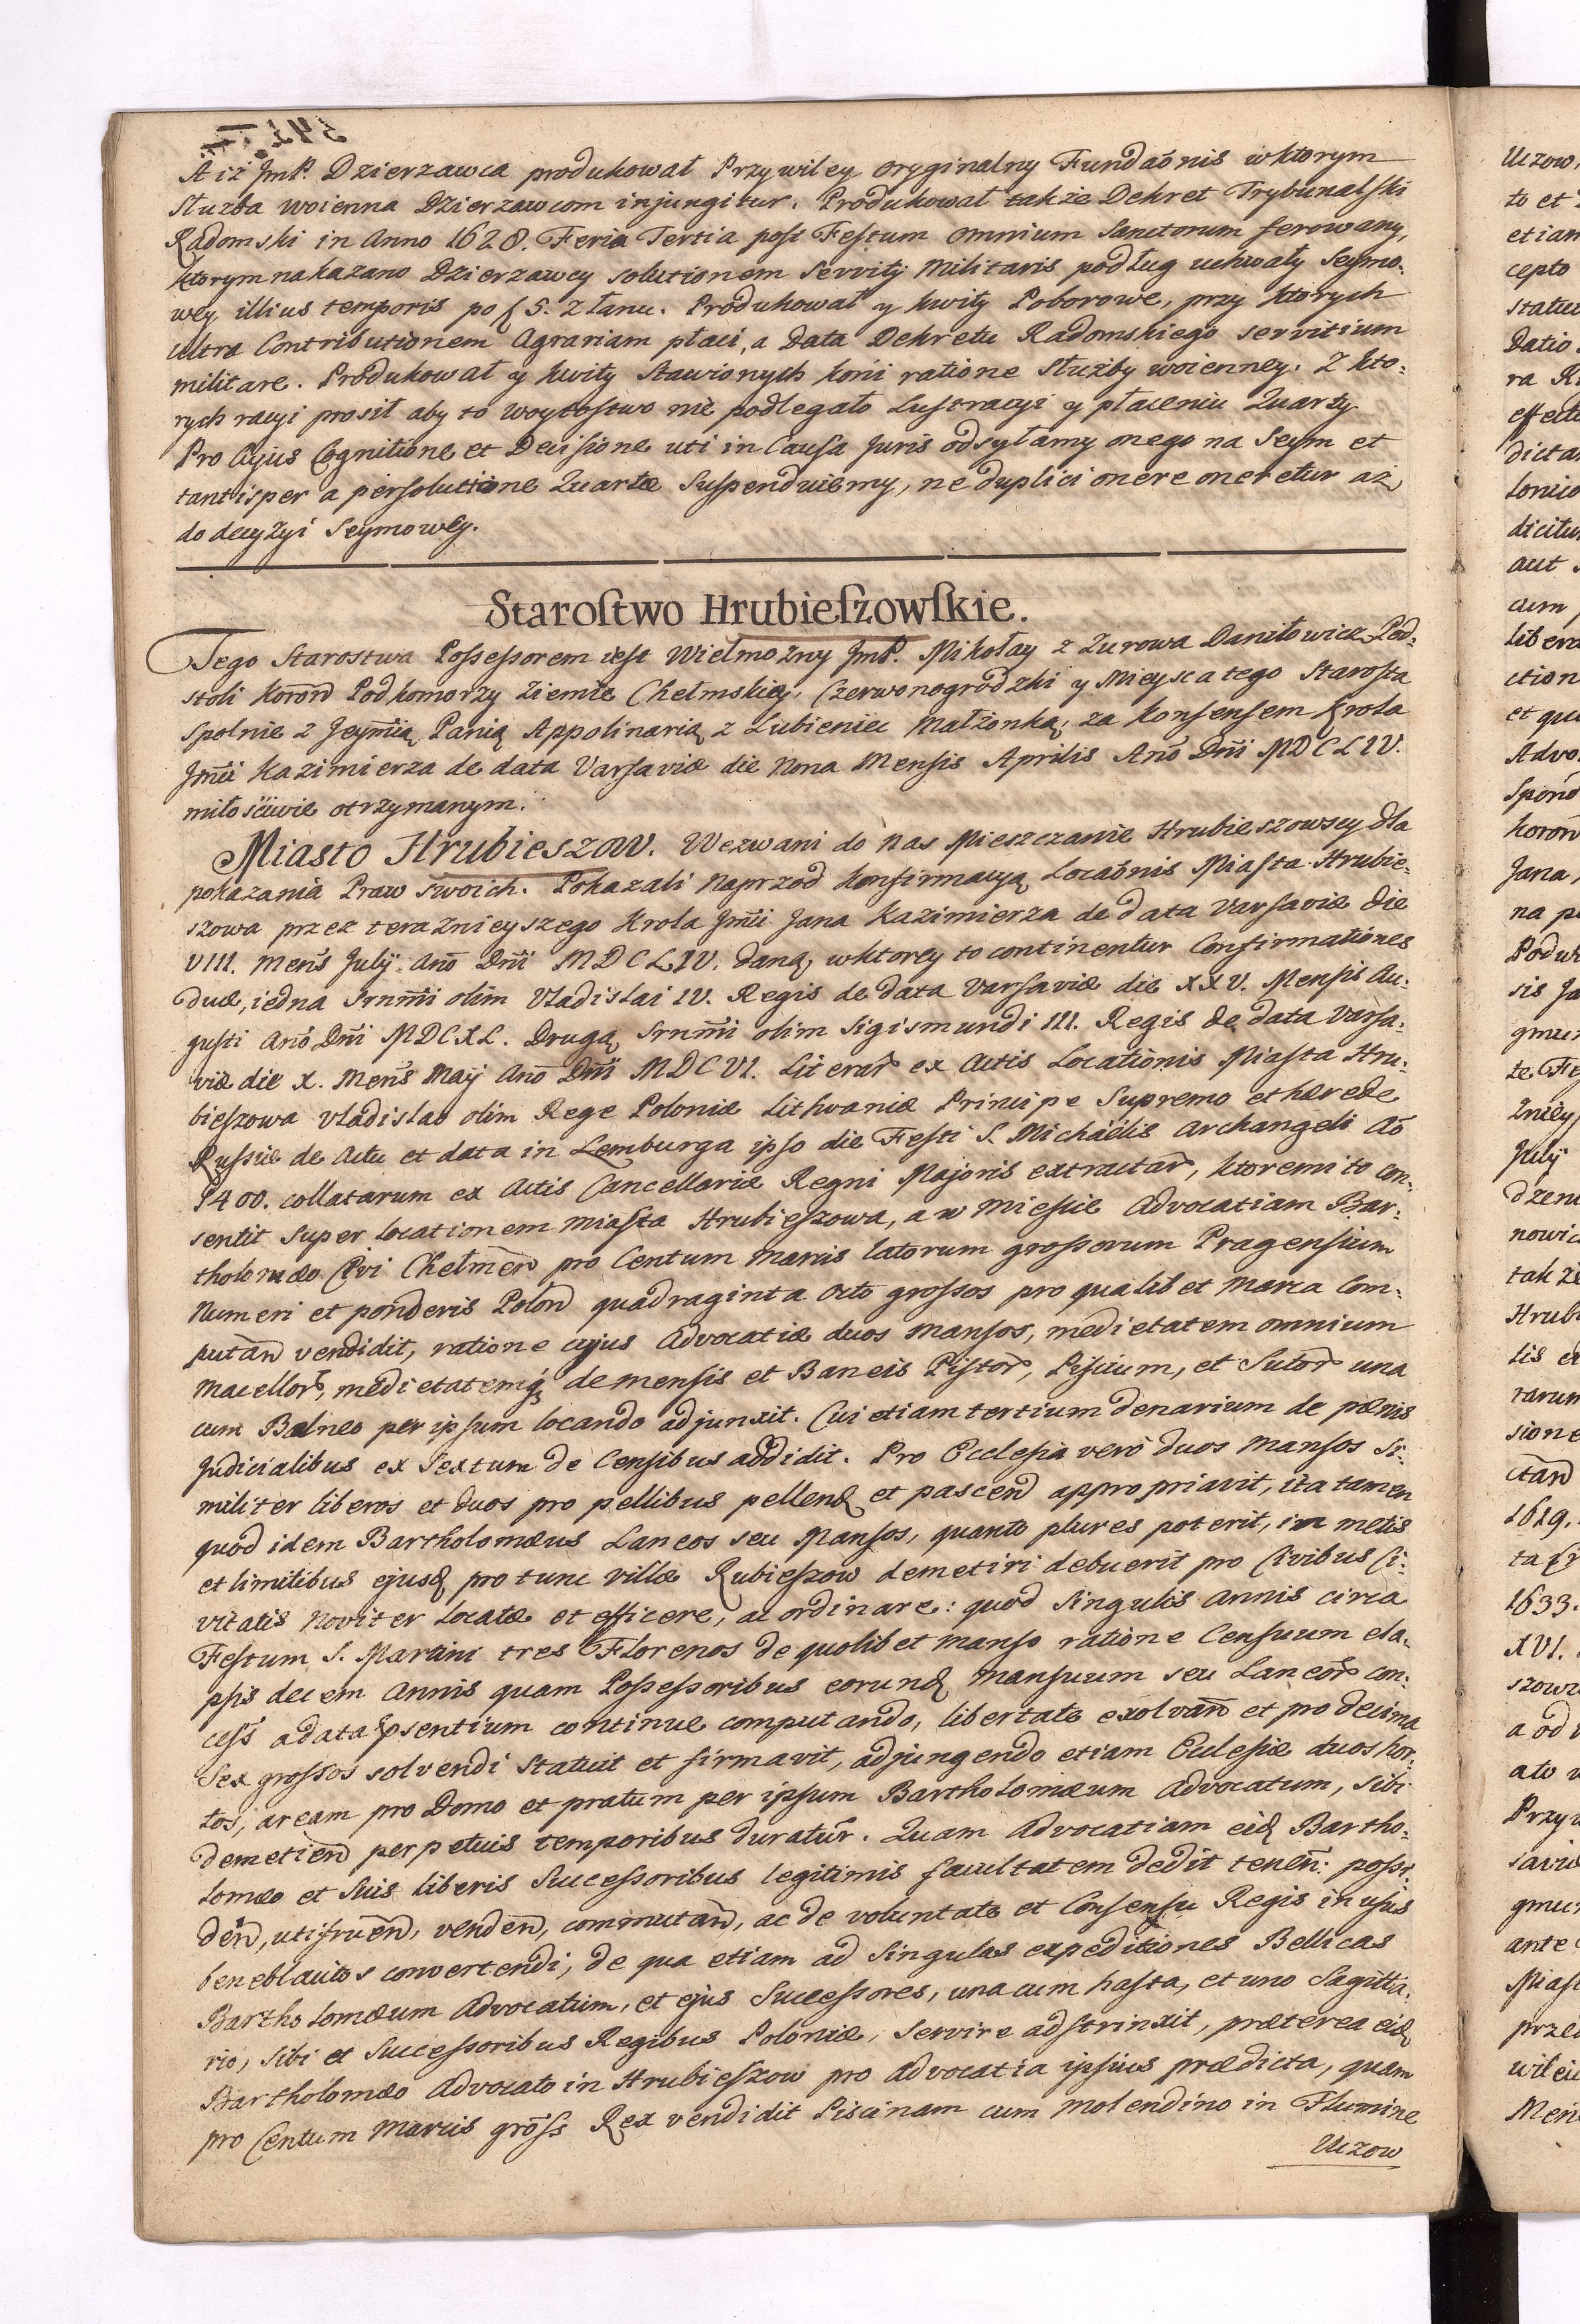 A iż JmP. Dzierzawca produkował Przywiley oryginalny Fundaõnis wktorym
służba woienna Dzierzawcom injungitur. Produkował także Dekret Trybunalski
Radomski in Anno 1628. Feria Tertia post Festum Omnium Sanctorum ferowany,
ktorym nakazano Dzierzawcy solutionem servitij militaris podług uchwały Seymo:
wey illius temporis po f 5. z łanu. Produkował y kwity Poborowe, przy ktorych
ultra Contributionem Agrariam płaci, a data Dekretu Radomskiego servitium
militare. Produkował y kwity Stawionych koni ratione służby woienney. Z kto:
rych racyi prosił aby to woytostwo nie podlegało Lustracyi y płaceniu Quarty.
Pro Cujus Cognitione et Decisione uti in Causa juris odsyłamy onego na Seym et
tantisper a persolutione Quartæ Suspenduiemy, ne duplici onere oneretur aż
do decyzyi Seymowey.
Starostwo Hrubieszowskie.
Tego Starostwa Possessorem iest Wielmożny JmP. Mikołay z Zurowa Daniłowicz Pod:
stoli Koron̄ Podkomorzy Ziemie Chełmskiey, Czerwonogrodzki y Mieysca tego Starosta
spolnie z Jeym̃cią Panią Appolinarią z Lubieniec małżonką, za konsensem Krola
Jm̃ci Kazimierza de data Varsaviæ die Nona Mensis Aprilis Anõ Dñi MDCLIV.
miłościwie otrzymanym.
Miasto Hrubieszow. Wezwani do nas Mieszczanie Hrubieszowscy dla
pokazania Praw swoich. Pokazali naprzod konfirmacyą Locaõnis Miasta Hrubie:
szowa przez teraznieyszego Krola Jm̃ci Jana Kazimierza de data Varsaviæ die
VIII. Mens̃ July Anõ Dñi MDCLIV. daną, wktorey to continentur Confirmationes
duæ, iedna Srnm̃i olim Vladislai IV. Regis de data Varsaviæ die XXV. Mensis Au:
gusti Anõ Dñi MDCXL. Drugą Srnm̃i olim Sigismundi III. Regis de data Varsa:
viæ die X. Mens̃ Maij Anõ Dñi MDCVI. Literar̃ ex Actis Locationis Miasta Hru:
bieszowa Vladislao olim Rege Poloniæ Lithvaniæ Principe Supremo et hærede
Russiæ de Actu et data in Lemburga ipso die Festi S. Michaëlis Archangeli Aõ
1400. collatarum ex Actis Cancellariæ Regni Majoris extractar̃, ktoremi to con:
sentit super locationem miasta Hrubieszowa, a w Mieście Advocatiam Bar:
tholomæo Civi Chełmen̄ pro Centum marcis latorum grossorum Pragensium
numeri et ponderis Polon̄ quadraginta octo grossos pro qualibet marca com:
putan̄ vendidit, ratione cujus Advocatiæ duos mansos, medietatem omnium
macellor̃, medietatemq́ de mensis et Bancis Pistor̃, Piscium, et Sutor̃ una
cum Balneo per ipsum locando adjunxit. Cui etiam tertium denarium de pænis
Judicialibus ex Sextum de Censibus addidit. Pro Ecclesia verò duos Mansos Si:
militer liberos et duos pro pellibus pellend et pascen̄ appropriavit, ita tamen
quod idem Bartholomæus Laneos seu Mansos, quanto plures poterit, in metis
et limitibus ejusd pro tunc villæ Rubieszow demetiri debuerit pro Civibus Ci:
vitatis noviter locatæ et efficere, ac ordinare: quod singulis annis circa
Festum S. Martini tres Florenos de quolibet manso ratione Censuum ela:
psis decem annis quam Possessoribus eorund mansuum seu Laneor̃ con:
cess̃ a data p̃sentium continue computando, libertate exolvan̄ et pro decima
Sex grossos solvendi statuit et firmavit, adjungendo etiam Ecclesiæ duos hor:
tos, aream pro Domo et pratum per ipsum Bartholomæum Advocatum, sibi
demetien̄ perpetuis temporibus duratur̃. Quam Advocatiam eid Bartho:
lomæo et suis liberis Successoribus legitimis facultatem dedit tenen̄: possi:
den̄, utifruen̄, venden̄, commutan̄, ac de voluntate et Consensu Regis in usus
beneblacitos convertendi, de qua etiam ad singulas expeditiones Bellicas
Bartholomæum Advocatum, et ejus Successores, una cum hasta, et uno Sagitta:
rio, sibi et Successoribus Regibus Poloniæ, servire adstrinxit, præterea eid
Bartholomæo Advocato in Hrubieszow pro Advocatia ipsius prædicta, quam
pro Centum Marcis gros̃s Rex vendidit Piscinam cum molendino in Flumine
Uczow